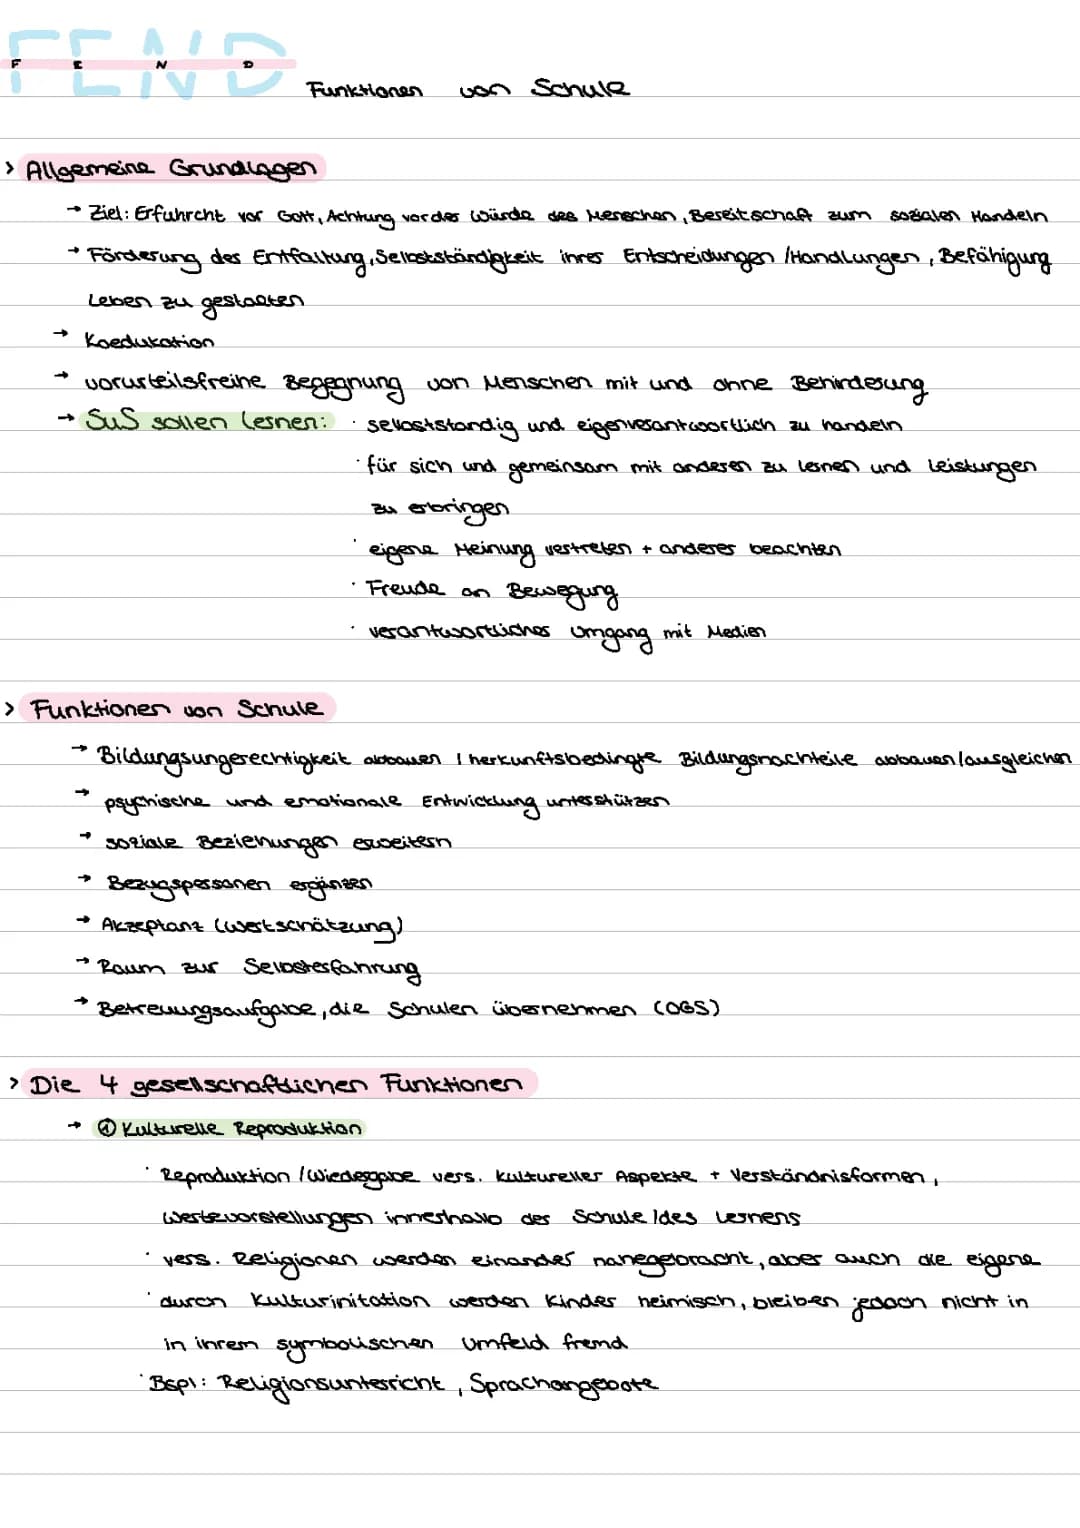 FEND
F E N D
Funktionen von Schule
> Allgemeine Grundlagen
→ Ziel: Erfuhrcht vor Gott, Achtung vor der Würde des Menschen, Bereitschaft zum sozialen Handeln
→ Förderung der Entfaltung, Selbstständigkeit ihrer Entscheidungen / Handlungen, Befähigung
Leben zu gestalten
→ Koedukation
→ vorurteilsfreihe Begegnung von Menschen mit und ohne Behinderung
→ SuS sollen lernen: · selbstständig und eigenverantwortlich zu handeln
· für sich und gemeinsam mit anderen zu lernen und Leistungen
zu erbringen
· eigene Meinung vertreten + anderer beachten
· Freude an Bewegung
· verantwortlicher Umgang mit Medien
> Funktionen von Schule
→ Bildungsungerechtigkeit abbauen / herkunftsbedingte Bildungsnachteile abbauen/ausgleichen
→ psychische und emotionale Entwicklung unterstützen
→ soziale Beziehungen erweitern
→ Bezugspersonen ergänzen
→ Akzeptanz (Wertschätzung)
→ Raum zur Selbsterfahrung
→ Betreuungsaufgabe, die Schulen übernehmen (OGS)
> Die 4 gesellschaftlichen Funktionen
→ ① Kulturelle Reproduktion
· Reproduktion / Wiedergabe vers. kultureller Aspekte + Verständnisformen,
Wertevorstellungen innerhalb der Schule / des Lernens
· vers. Religionen werden einander nahegebracht, aber auch die eigene
· durch Kulturinitation werden Kinder heimisch, bleiben jedoch nicht in
in ihrem symbolischen Umfeld fremd
· Bspl: Religionsunterricht, Sprachangebote